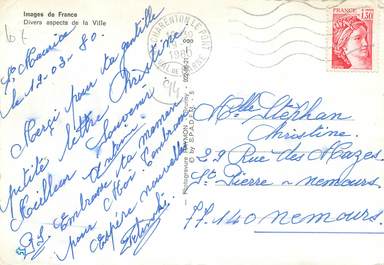 Images de France
Divers aspects de la Ville
St Maurice
le 19.03.80.
Merci pour ta gentille
petite lettre Christine
Meilleur Souvenir
P.S Embrasse ta maman
pour Moi
Espère nouvelles
CHARENTON LE PONT
1980
VAL DE MARNE
94
1,30
© by S.P.A.D.E.M.
Melle Stéphan
Christine.
29 Rue des Mazes
St Pierre - nemours.
77.140 nemours.